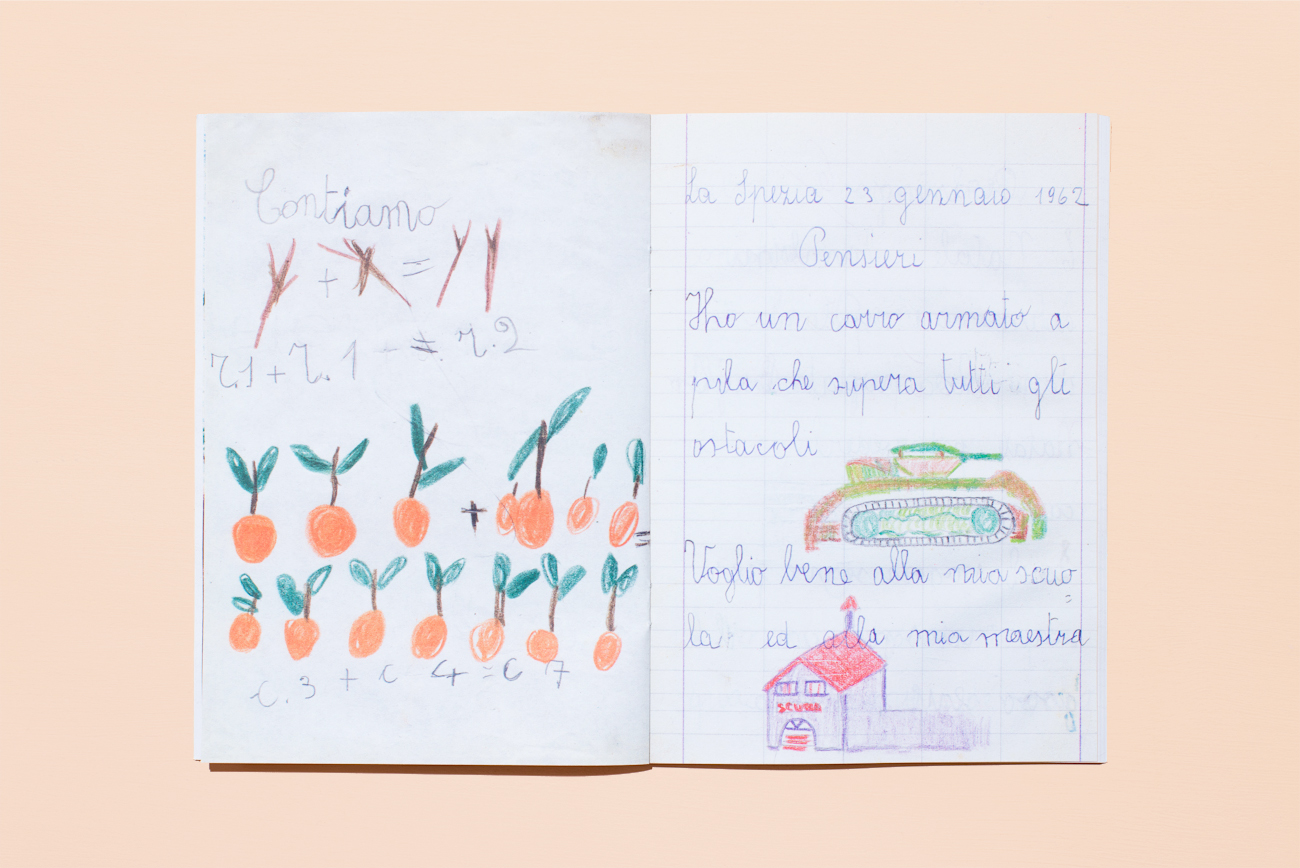 Contiamo
+ =
r.1 + r. 1 = r.2
+
=
c. 3 + c 4 = c 7
La Spezia 23 gennaio 1962
Pensieri
Ho un carro armato a
pila che supera tutti gli
ostacoli
Voglio bene alla mia scuo=
la ed alla mia maestra
SCUOLA